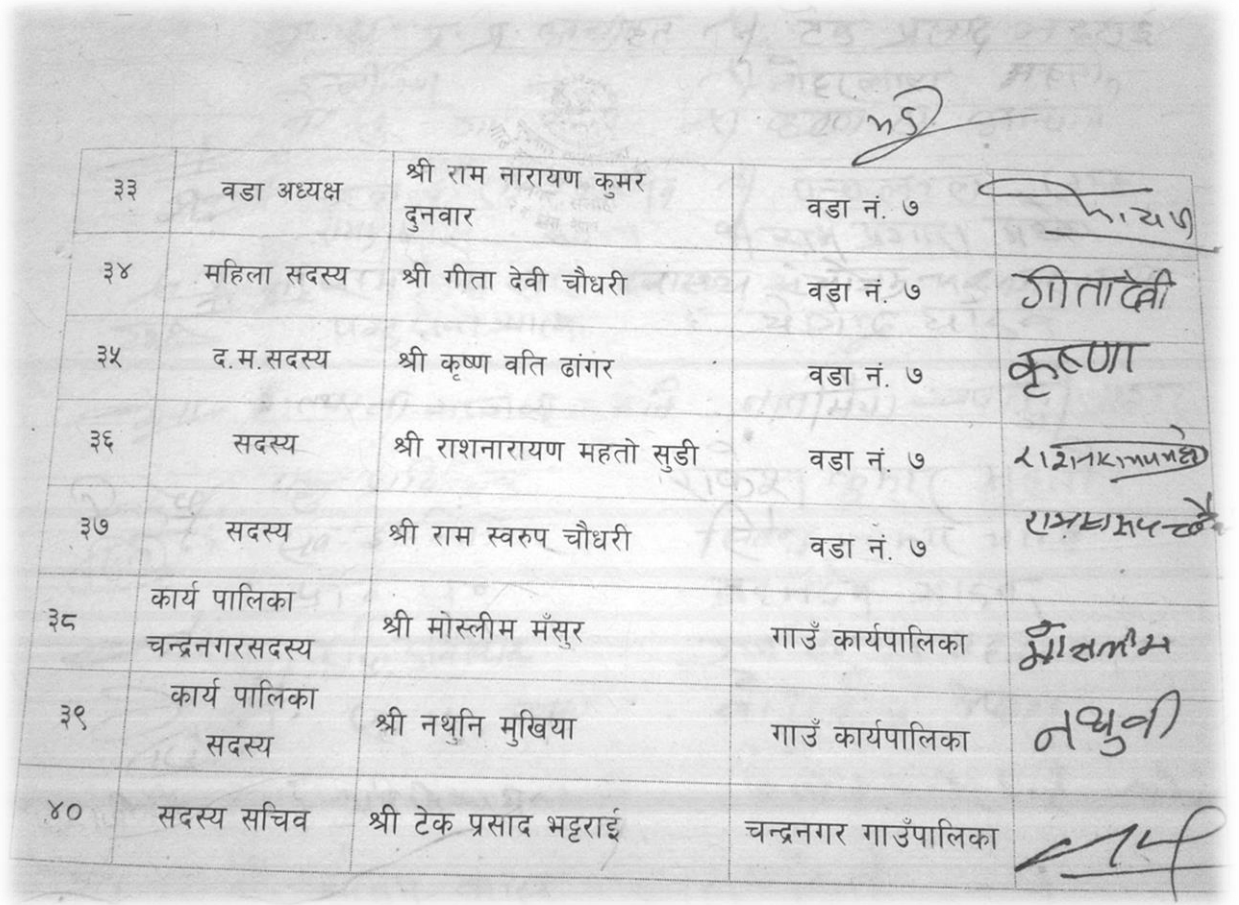 ३३ वडा अध्यक्ष श्री राम नारायण कुमर दुनवार वडा नं. ७
३४ महिला सदस्य श्री गीता देवी चौधरी वडा नं. ७ गीतादेवी
३५ द.म.सदस्य श्री कृष्ण वति ढांगर वडा नं. ७ कृष्णा
३६ सदस्य श्री राशनारायण महतो सुडी वडा नं. ७
३७ सदस्य श्री राम स्वरुप चौधरी वडा नं. ७
३८ कार्य पालिका चन्द्रनगरसदस्य श्री मोस्लीम मँसुर गाउँ कार्यपालिका
३९ कार्य पालिका सदस्य श्री नथुनि मुखिया गाउँ कार्यपालिका नथुनी
४० सदस्य सचिव श्री टेक प्रसाद भट्टराई चन्द्रनगर गाउँपालिका